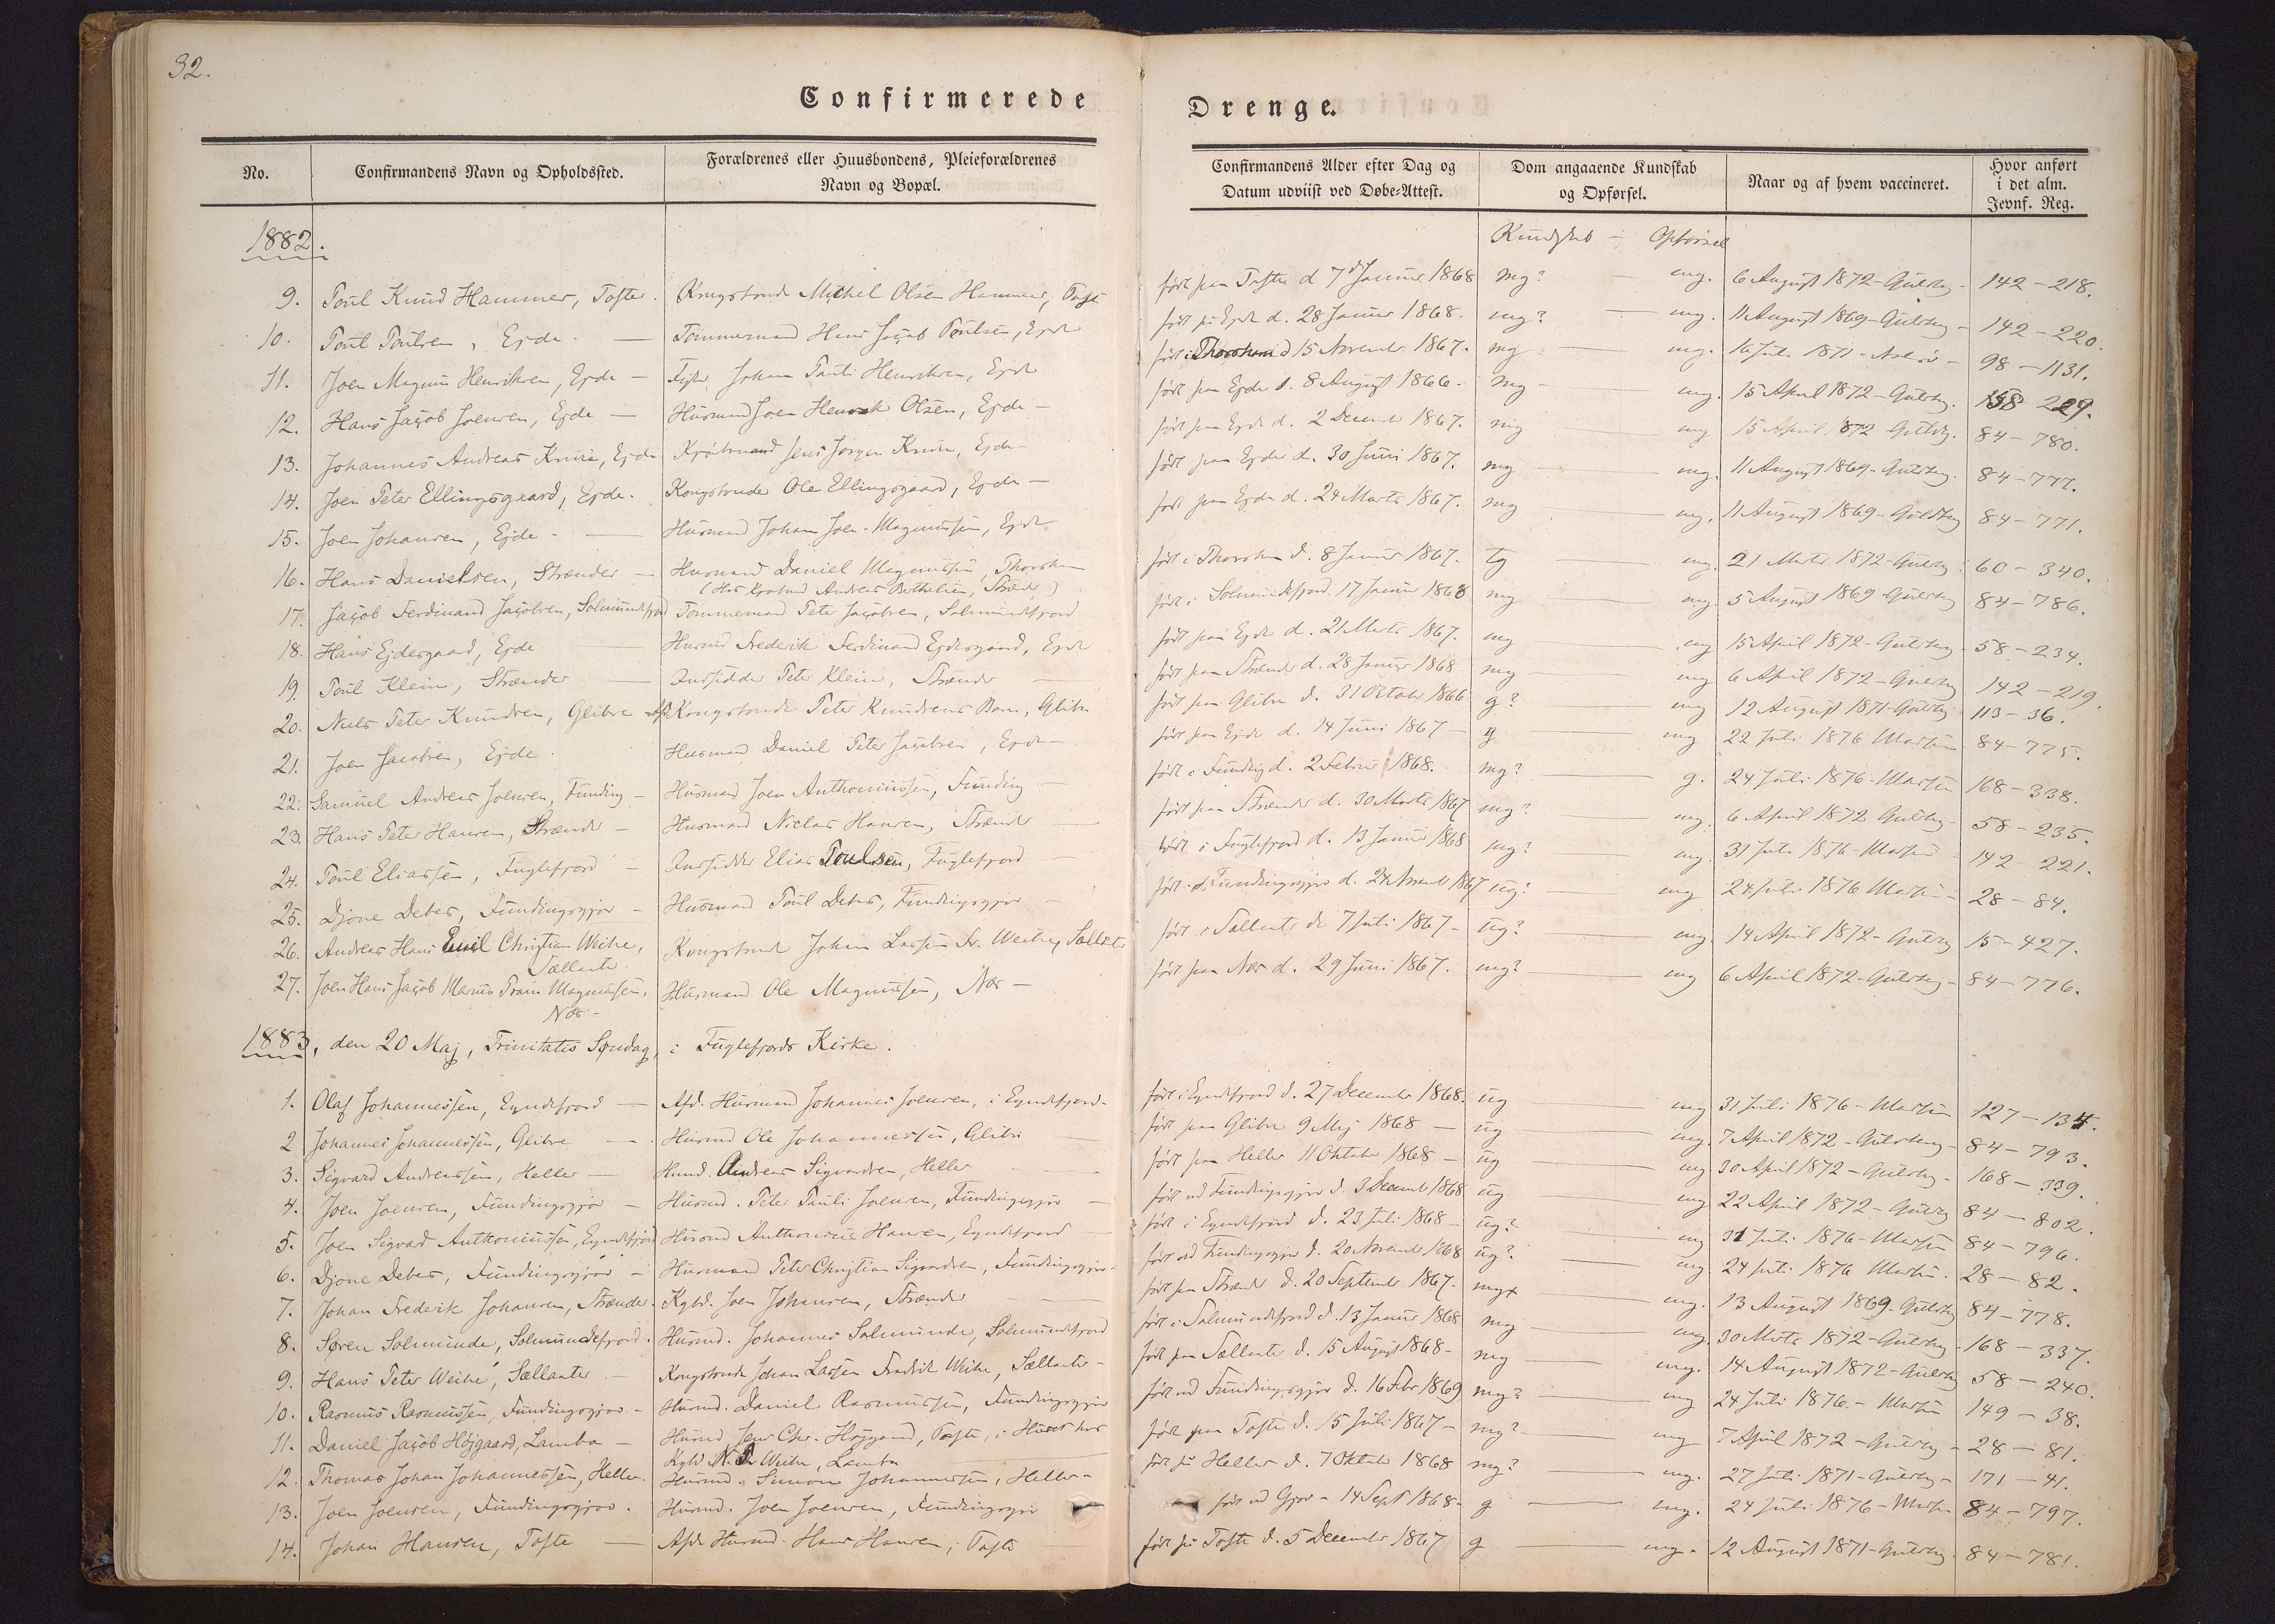 32.
Confirmerede Drenge.
No. Confirmandens Navn og Opholdssted. Forældrenes eller Huusbondens, Pleieforældrenes Navn og Bopæl. Confirmandens Alder efter Dag og Datum udviist ved Døbe-Attest. Dom angaaende Kundskab og Opførsel. Naar og af hvem vaccineret. Hvor anført i det alm. Jevnf. Reg.
1882. Kundskab - Opførsel
9. Poul Knud Hammer, Tofte. Kongsbonde Michel Olsen Hammer, Tofte født paa Tofte d 7 Januar 1868 mg? mg. 6 August 1872 - 142 - 218.
10. Poul Poulsen, Ejde. Tømmermand Hans Jacob Poulsen, Ejde født på Ejde d. 28 Januar 1868. mg? mg. 11 August 1869 - 142 - 220.
11. Joen Magnus Henriksen, Ejde - Johan Pauli Henriksen, Ejde født i Thorshavn d 15 November 1867. mg mg. 1871 - 98 - 1131.
12. Hans Jacob Joensen, Ejde - Husmand Joen Henrik Olsen, Ejde - født paa Ejde d. 8 August 1866 - mg mg. 15 April 1872 - 229.
13. Johannes Andreas Kruse, Ejde Jens Jørgen Kruse, Ejde født paa Ejde d. 2 December 1867. mg mg 15 April 1872 84 - 780.
14. Joen Peter Ellingsgaard, Ejde. Kongsbonde Ole Ellingsgaard, Ejde - født paa Ejde d. 30 Juni 1867. mg mg. 11 August 1869 - 84 - 777.
15. Joen Johansen, Ejde. Husmand Johan Joen Magnussen, Ejde født paa Ejde d. 24 Marts 1867. mg mg. 11 August 1869 - 84 - 771.
16. Hans Danielsen, Strænder - Husmand Daniel Magnussen, Thorshavn født i Thorshavn d. 8 Januar 1867. tg mg. 21 Marts 1872 - 60 - 340.
(Hos Andreas Berthelsen, Strænder)
17. Jacob Ferdinand Jacobsen, Solmundefjord Tømmermand Peter Jacobsen, Solmundefjord født i Solmundefjord 17 Januar 1868 mg mg. 5 August 1869 84 - 786.
18. Hans Ejdesgaard, Ejde Husmd Frederik Ferdinand Ejdesgaard, Ejde født paa Ejde d. 21 Marts 1867. mg mg 15 April 1872 - 58 - 234.
19. Poul Klein, Strænder Indsidder Peter Klein, Strænder født paa Strænder d. 28 Januar 1868 mg mg 6 April 1872 - 142 - 219.
20. Niels Peter Knudsen, Glibre Afd. Kongsbonde Peter Knudsens Barn, Glibre født paa Glibre d. 31 October 1866 g? mg 12 August 1871 - 113 - 36.
21. Joen Jacobsen, Ejde. Husmand Daniel Peter Jacobsen, Ejde - født paa Ejde d. 14 Juni 1867 - g mg 22 Juli 1876 84 - 775.
22. Samuel Andreas Joensen, Funding - Husmand Joen Anthoniussen, Funding født i Funding d. 2 Februar 1868. mg? g. 24 Juli 1876 - 168 - 338.
23. Hans Peter Hansen, Strænder - Husmand Niclas Hansen, Strænder født paa Strænder d. 30 Marts 1867 mg? mg. 6 April 1872 - 58 - 235.
24. Poul Eliassen, Fuglefjord - Indsidder Elias Poulsen, Fuglefjord født i Fuglefjord d. 13 Januar 1868 mg? mg. 31 Juli 1876 - 142 - 221.
25. Djone Debes, Fundingsgjov - Husmand Poul Debes, Fundingsgjov født i Fundingsgjov d. 1867 ug? mg 24 Juli 1876 28 - 84.
26. Andreas Hans Emil Christian Weihe, Sællatræ Kongsbonde Johan Lassen Fr. Weihe, Sællatræ født i Sællatræ d. 7 Juli 1867 - ug? mg. 14 April 1872 - 15 - 427.
27. Joen Hans Jacob Marius Magnussen, Næs - Husmand Ole Magnussen, Næs - født paa Næs d. 29 Juni 1867. mg? mg 6 April 1872 - 84 - 776.
1883, den 20 Maj, Trinitatis Søndag, i Fuglefjords Kirke.
1. Olaf Johannessen, Eyndefjord Afd. Husmand Johannes Joensen, i Eyndefjord - født i Eyndefjord d. 27 December 1868. ug mg 31 Juli 1876 - 127 - 134.
2 Johannes Johannessen, Glibre Husmd Ole Johannessen, Glibre født paa Glibre 9 Maj 1868 - ug mg. 7 April 1872 - 84 - 793.
3. Sigvard Andreassen, Heller Husmd. Andreas Sigvardsen, Heller født paa Heller 11 Oktober 1868 - ug mg 30 April 1872 - 168 - 339.
4. Joen Joensen, Fundingsgjov - Husmd. Peter Pauli Joensen, Fundingsgjov født ved Fundingsgjov d. 3 Decemb 1868 ug mg 22 April 1872 - 84 - 802.
5. Joen Sigvard Anthoniussen, Eyndefjord Husmd Anthonius Hansen, Eyndefjord født i Eyndefjord d. 23 Juli 1868 - ug? mg 31 Juli 1876 - 84 - 796.
6. Djone Debes, Fundingsgjov - Husmand Peter Christian Sigvardsen, Fundingsgjov - født ved Fundingsgjov d. 20 November 1868 ug? mg. 24 Juli 1876 28 - 82.
7. Johan Frederik Johansen, Strænder. Kgbd. Joen Johansen, Strænder født paa Strænder d. 20 September 1867. mg+ mg. 13 August 1869 - 84 - 778.
8. Søren Solmunde, Solmundefjord. Husmd. Johannes Solmunde, Solmundefjord født i Solmundefjord d. 13 Januar 1868 mg mg. 30 Marts 1872 - 168 - 337.
9. Hans Peter Weihe, Sællatræ Kongsbonde Johan Lassen Fredrik Weihe, Sællatræ - født paa Sællatræ d. 15 August 1868 - mg mg. 14 August 1872 - 58 - 240.
10. Rasmus Rasmussen, Fundingsgjov - Husmd. Daniel Rasmussen, Fundingsgjov født ved Fundingsgjov d. 16 Febr 1869 mg? mg 24 Juli 1876. - 149 - 38.
11. Daniel Jacob Højgaard, Lamba - Husmd Jens Chr. Højgaard, Tofte, i Huset hos Kgbd Weihe, Lamba født paa Tofte d. 15 Juli 1867 - mg? mg 7 April 1872 - 28 - 81.
12. Thomas Johan Johannessen, Heller. Husmd. Simon Johannessen, Heller - født på Heller d. 7 Oktober 1868 mg? mg. 27 Juli 1871 - 171 - 41.
13. Joen Joensen, Fundingsgjov. Husmd. Joen Joensen, Fundingsgjov født ved Gjov - 14 Sept 1868 - g mg. 24 Juli 1876 - 84 - 797.
14. Johan Hansen, Tofte Afd. Husmd. Hans Hansen, Tofte født på Tofte d. 5 December 1867 g mg. 12 August 1871 - 84 - 781.